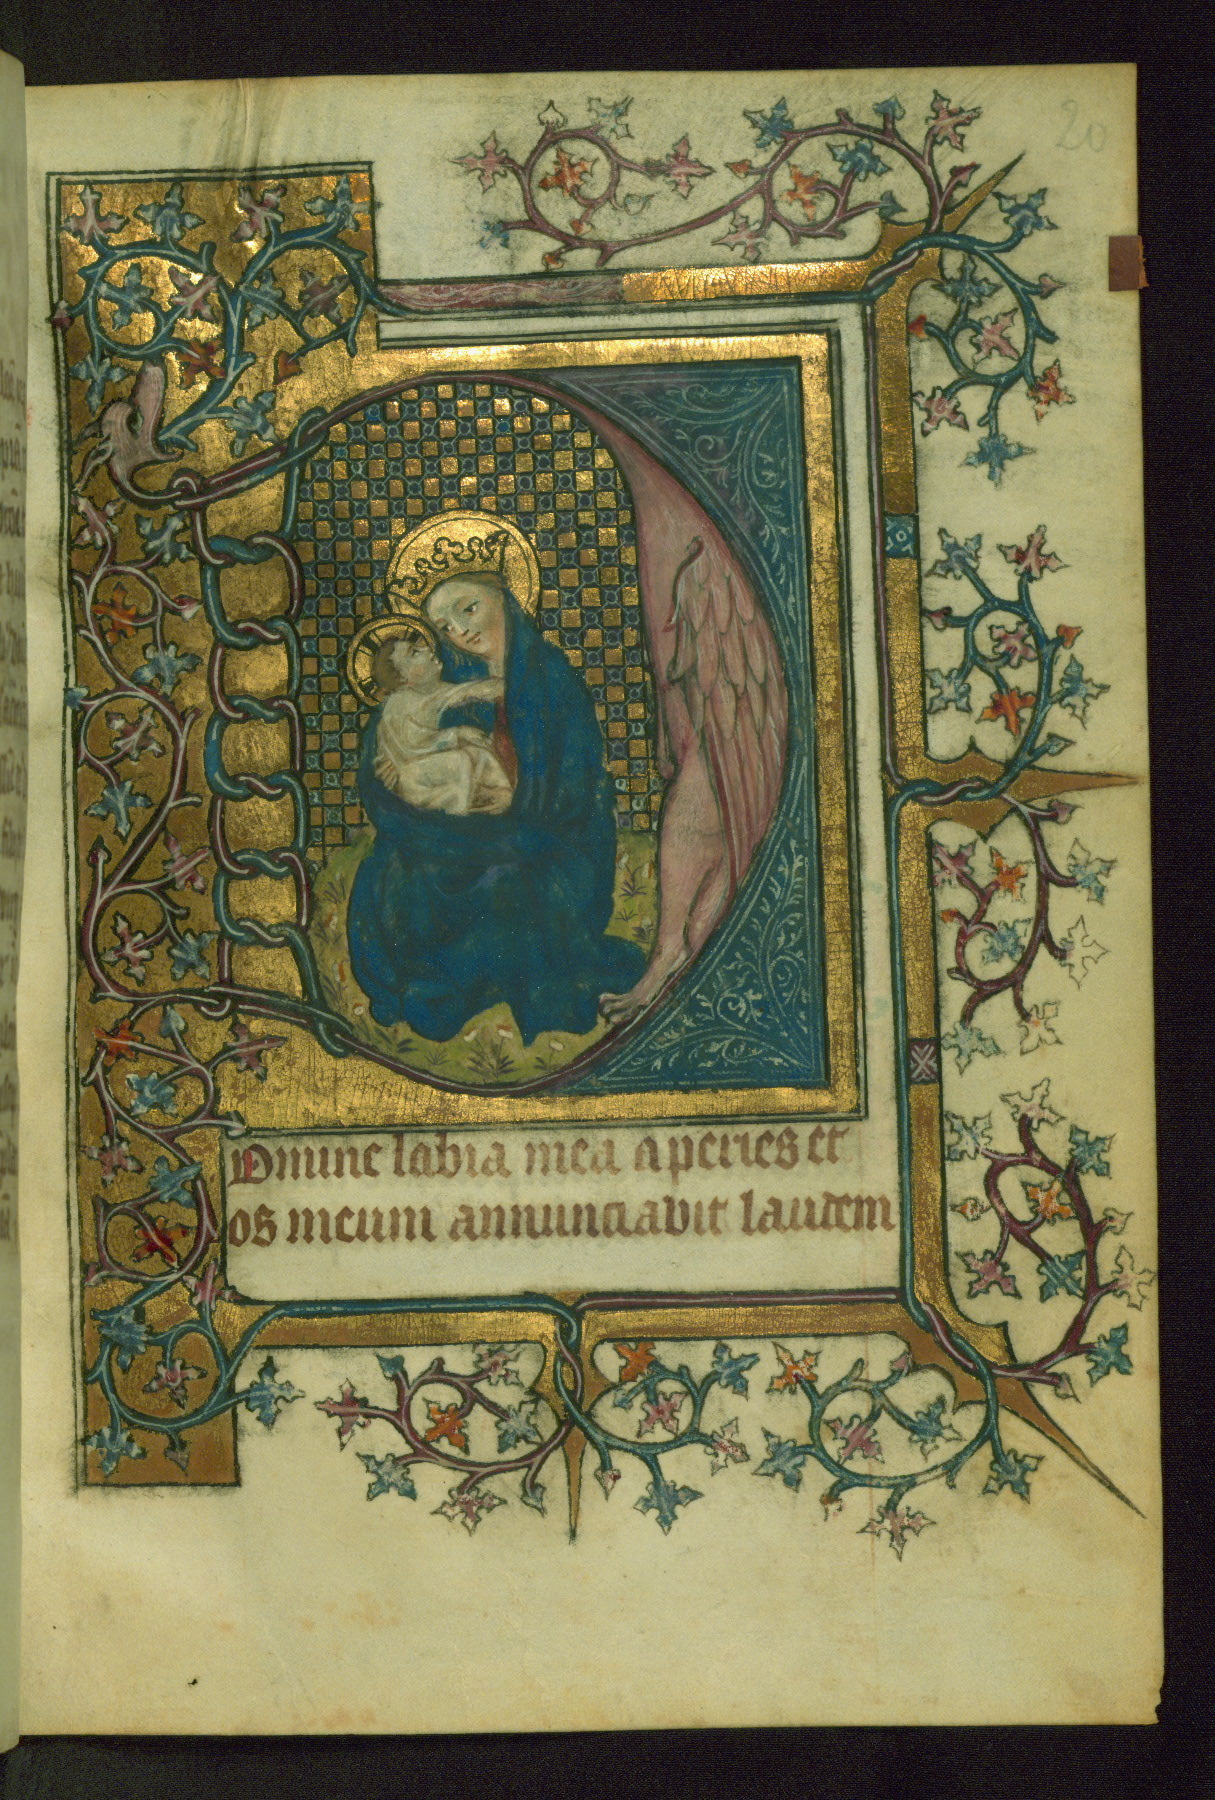 20
Domine labia mea aperies et
os meum annunciabit laudem